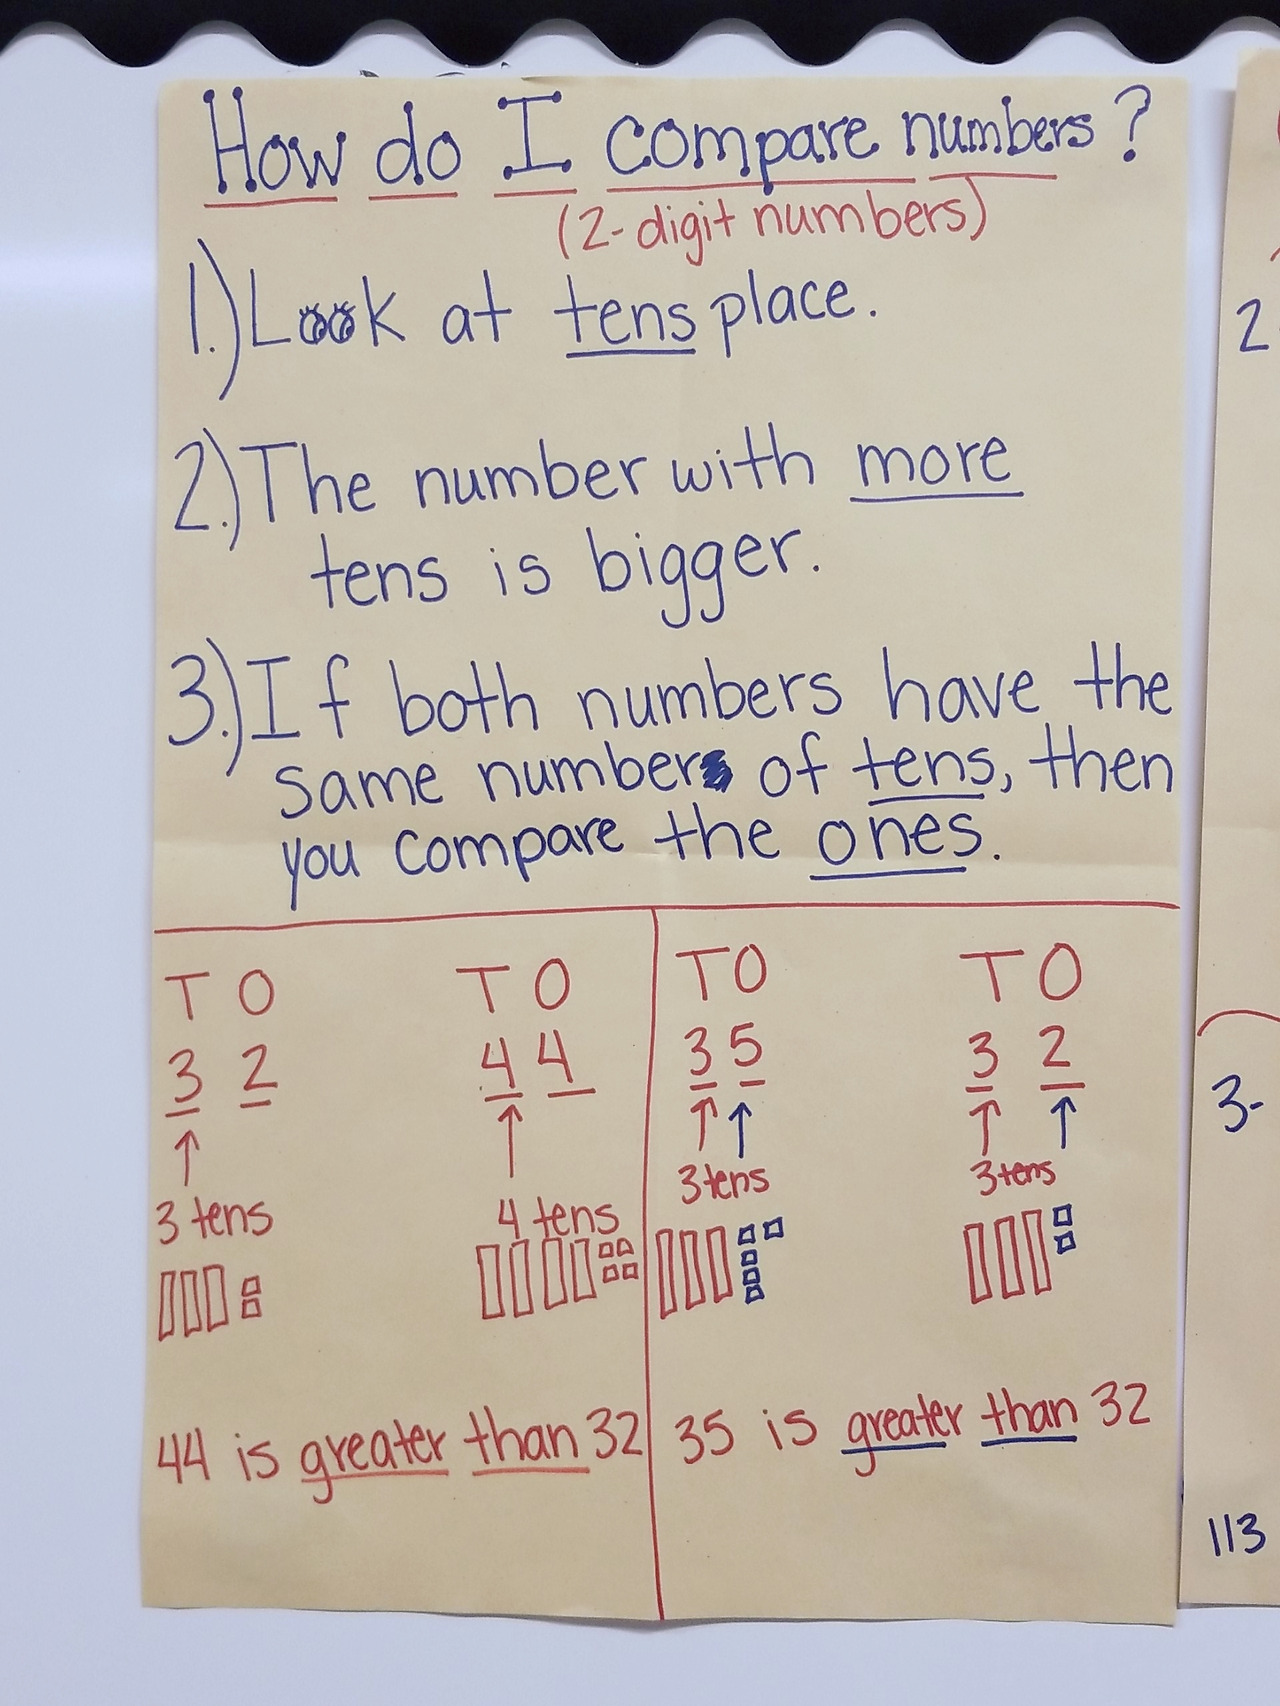 How do I compare numbers?
(2-digit numbers)
1.) Look at tens place.
2.) The number with more
tens is bigger.
3.) If both numbers have the
same number of tens, then
you compare the ones.
T O T O T O T O
3 2 4 4 3 5 3 2
3 tens 4 tens 3 tens 3 tens
44 is greater than 32 35 is greater than 32
2
3-
113